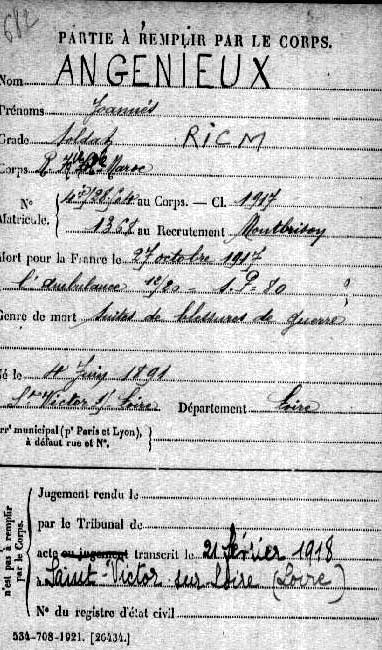 612
PARTIE À REMPLIR PAR LE CORPS.
Nom ANGENIEUX
Prénoms Joannès
Grade Soldat RICM
Corps R Maroc
N° au Corps. — Cl. 1917
Matricule. 1361 au Recrutement Montbrison
Mort pour la France le 27 octobre 1917
à l'ambulance 16/20 S.P. 80
Genre de mort suites de blessures de guerre
Né le 4 Juin 1891
St Victor s/ Loire Département Loire
Arrt municipal (pr Paris et Lyon),
à défaut rue et N°.
n'est pas à remplir
par le Corps.
Jugement rendu le
par le Tribunal de
acte ou jugement transcrit le 21 février 1918
à Saint-Victor sur Loire (Loire)
N° du registre d'état civil
534-708-1921. [26434.]